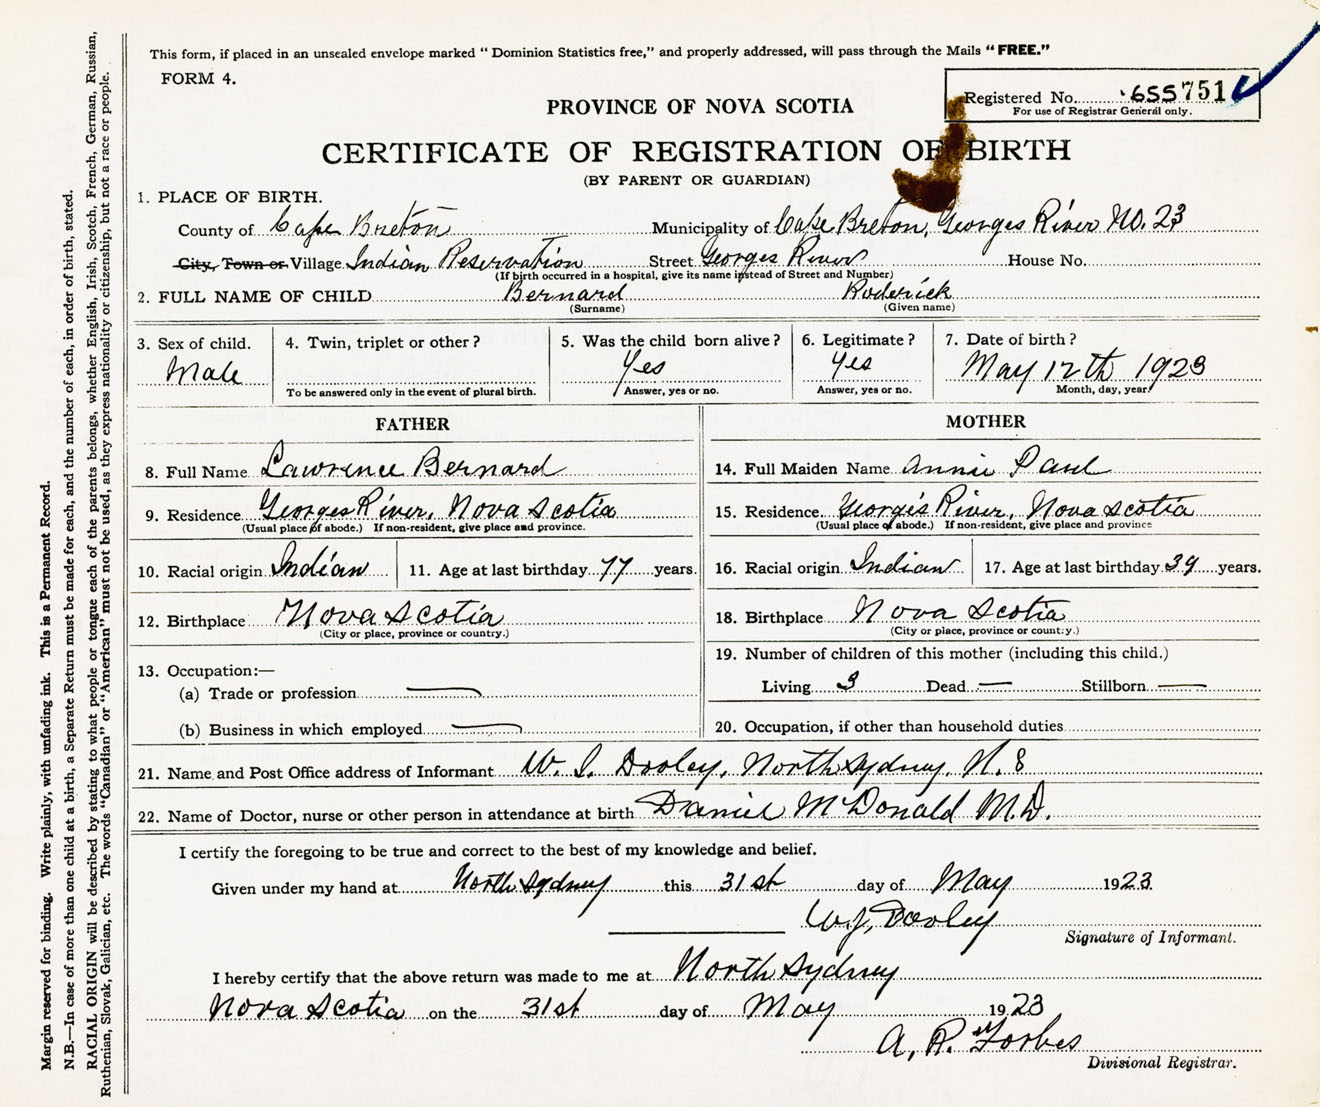 This form, if placed in an unsealed envelope marked "Dominion Statistics free," and properly addressed, will pass through the Mails "FREE."
FORM 4.
Registered No. 655751
For use of Registrar General only.
PROVINCE OF NOVA SCOTIA
CERTIFICATE OF REGISTRATION OF BIRTH
(BY PARENT OR GUARDIAN)
1. PLACE OF BIRTH.
County of Cape Breton Municipality of Cape Breton, Georges River No. 23
City, Town or Village Indian Reservation Street Georges River House No.
(If birth occurred in a hospital, give its name instead of Street and Number)
2. FULL NAME OF CHILD Bernard Roderick
(Surname) (Given name)
3. Sex of child. 4. Twin, triplet or other? 5. Was the child born alive? 6. Legitimate? 7. Date of birth?
Male Yes Yes May 12th 1923
To be answered only in the event of plural birth. Answer, yes or no. Answer, yes or no. Month, day, year.
FATHER MOTHER
8. Full Name Lawrence Bernard 14. Full Maiden Name Annie Paul
9. Residence Georges River, Nova Scotia 15. Residence Georges River, Nova Scotia
(Usual place of abode.) If non-resident, give place and province. (Usual place of abode.) If non-resident, give place and province
10. Racial origin Indian 11. Age at last birthday 77 years. 16. Racial origin Indian 17. Age at last birthday 39 years.
12. Birthplace Nova Scotia 18. Birthplace Nova Scotia
(City or place, province or country.) (City or place, province or country.)
13. Occupation:— 19. Number of children of this mother (including this child.)
(a) Trade or profession — Living 3 Dead — Stillborn —
(b) Business in which employed — 20. Occupation, if other than household duties
21. Name and Post Office address of Informant W. J. Dooley, North Sydney, N.S
22. Name of Doctor, nurse or other person in attendance at birth Daniel McDonald M.D.
I certify the foregoing to be true and correct to the best of my knowledge and belief.
Given under my hand at North Sydney this 31st day of May 1923
W. J. Dooley
Signature of Informant.
I hereby certify that the above return was made to me at North Sydney
Nova Scotia on the 31st day of May 1923
A. R. Forbes
Divisional Registrar.
Margin reserved for binding. Write plainly, with unfading ink. This is a Permanent Record.
N.B.—In case of more than one child at a birth, a Separate Return must be made for each, and the number of each, in order of birth, stated.
RACIAL ORIGIN will be described by stating to what people or tongue each of the parents belongs, whether English, Irish, Scotch, French, German, Russian,
Ruthenian, Slovak, Galician, etc. The words "Canadian" or "American" must not be used, as they express nationality or citizenship, but not a race or people.